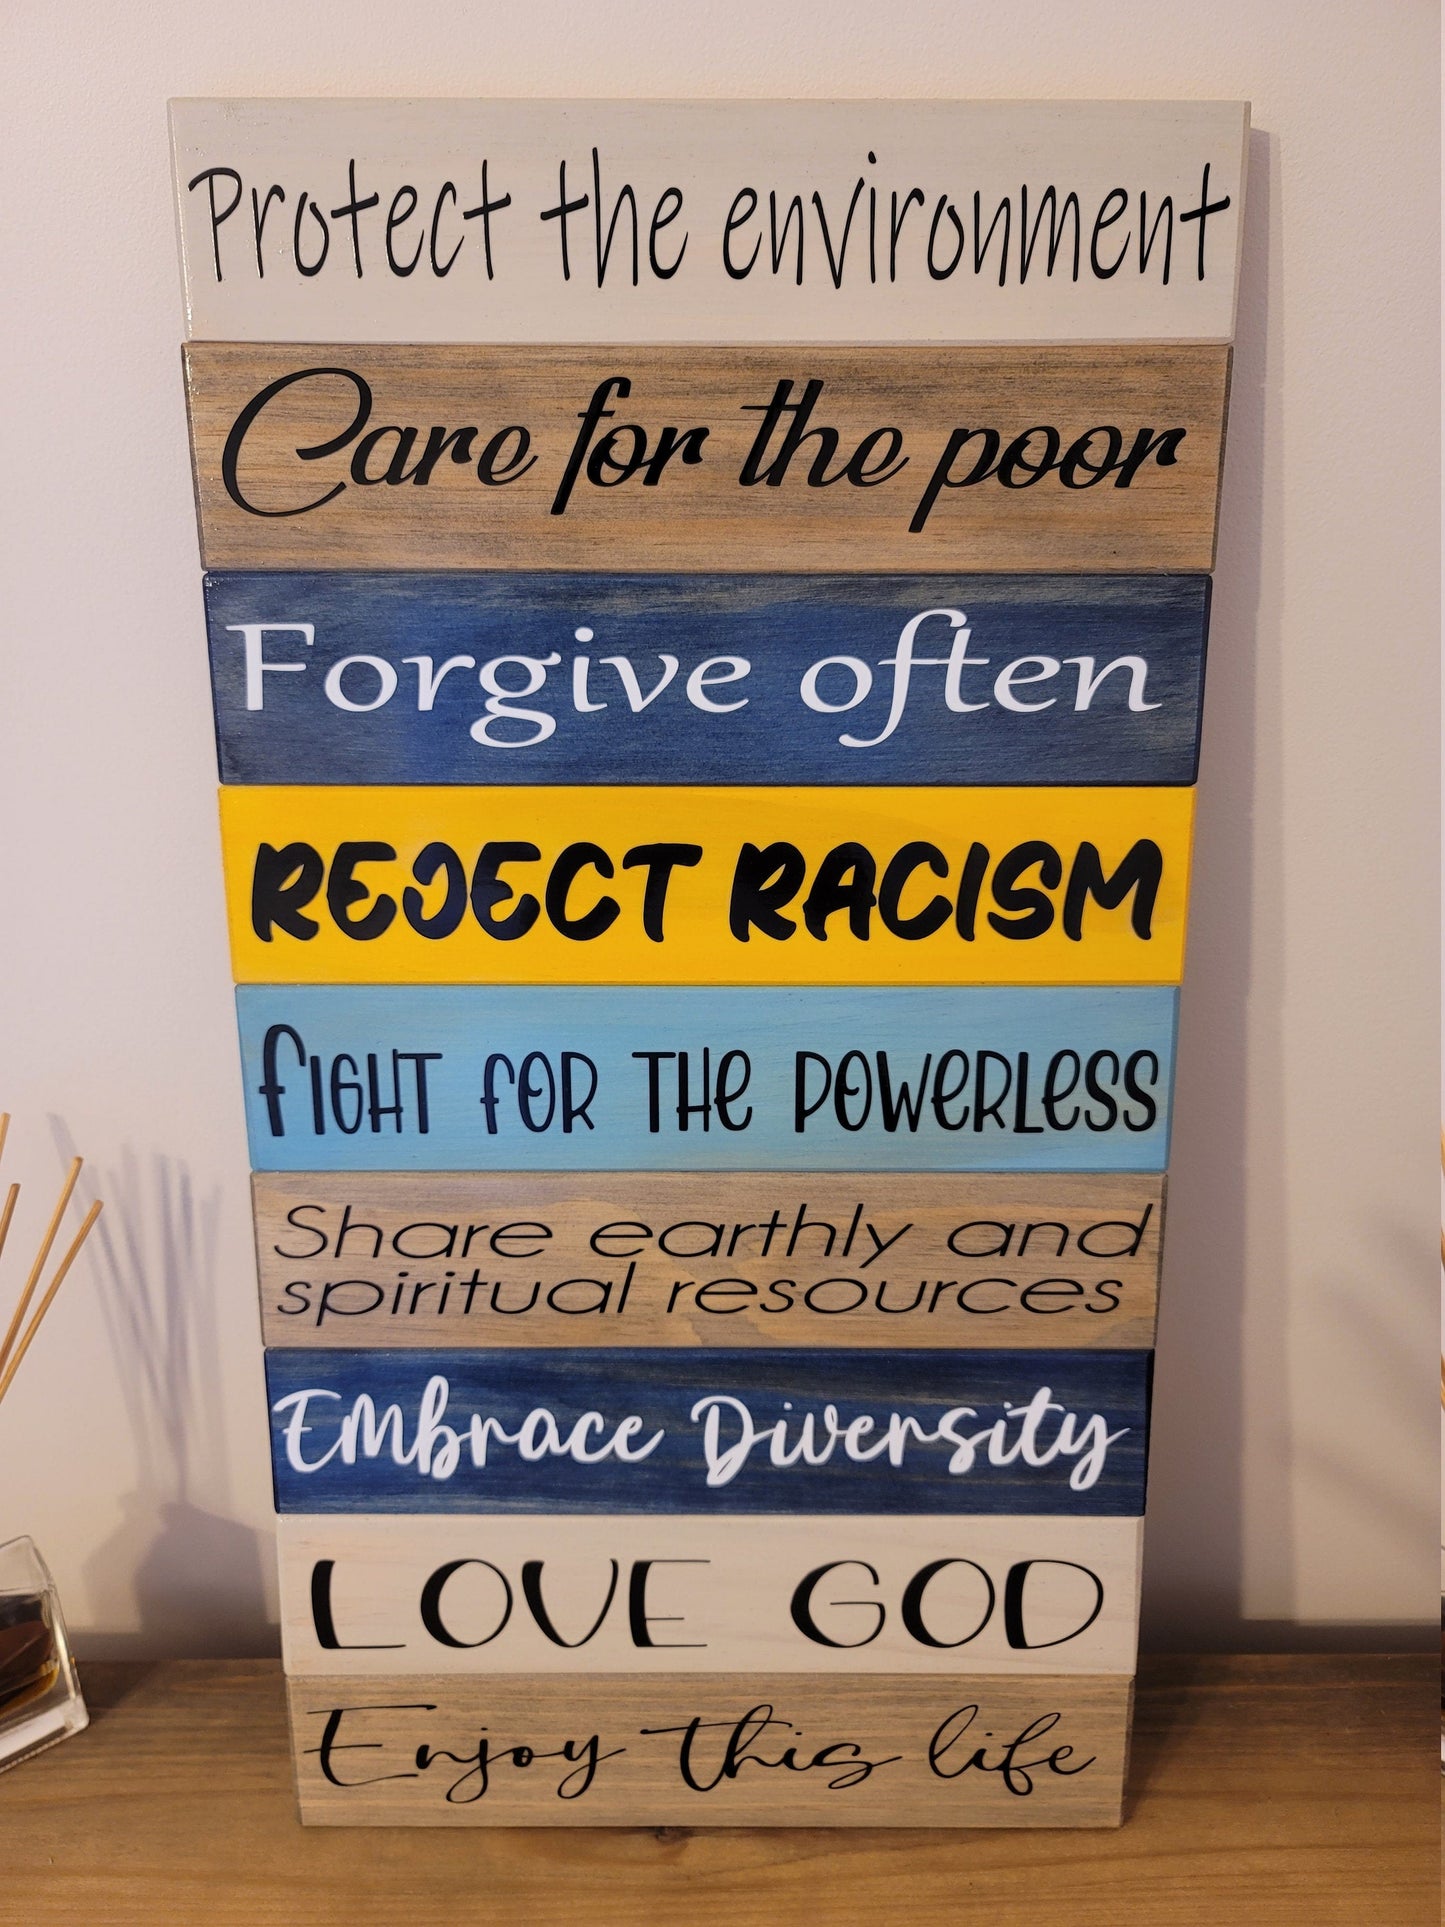 Protect the environment
Care for the poor
Forgive often
REJECT RACISM
FIGHT FOR THE POWERLESS
Share earthly and
spiritual resources
Embrace Diversity
LOVE GOD
Enjoy this life